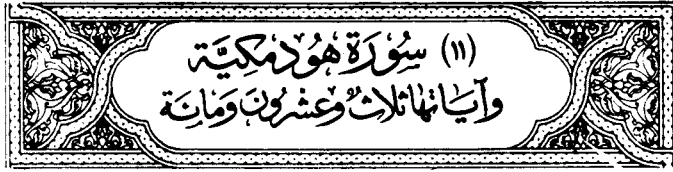 (١١) سُورَة هُود مَكيَّة
وآيَاتها ثلاث وعشرون ومائة